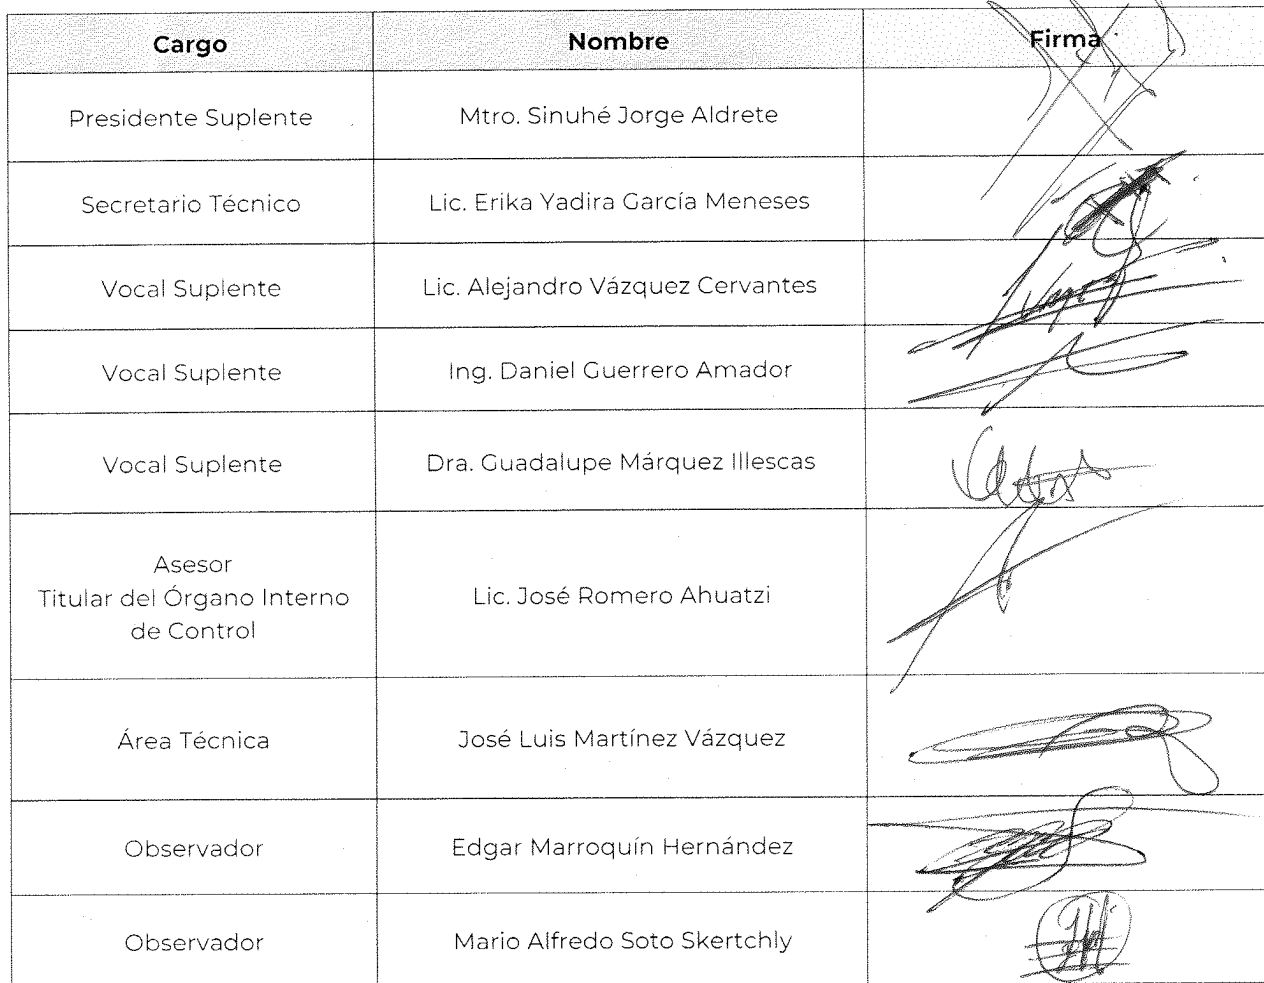 Cargo Nombre Firma
Presidente Suplente Mtro. Sinuhé Jorge Aldrete
Secretario Técnico Lic. Erika Yadira García Meneses
Vocal Suplente Lic. Alejandro Vázquez Cervantes
Vocal Suplente Ing. Daniel Guerrero Amador
Vocal Suplente Dra. Guadalupe Márquez Illescas
Asesor
Titular del Órgano Interno
de Control
Lic. José Romero Ahuatzi
Área Técnica José Luis Martínez Vázquez
Observador Edgar Marroquín Hernández
Observador Mario Alfredo Soto Skertchly